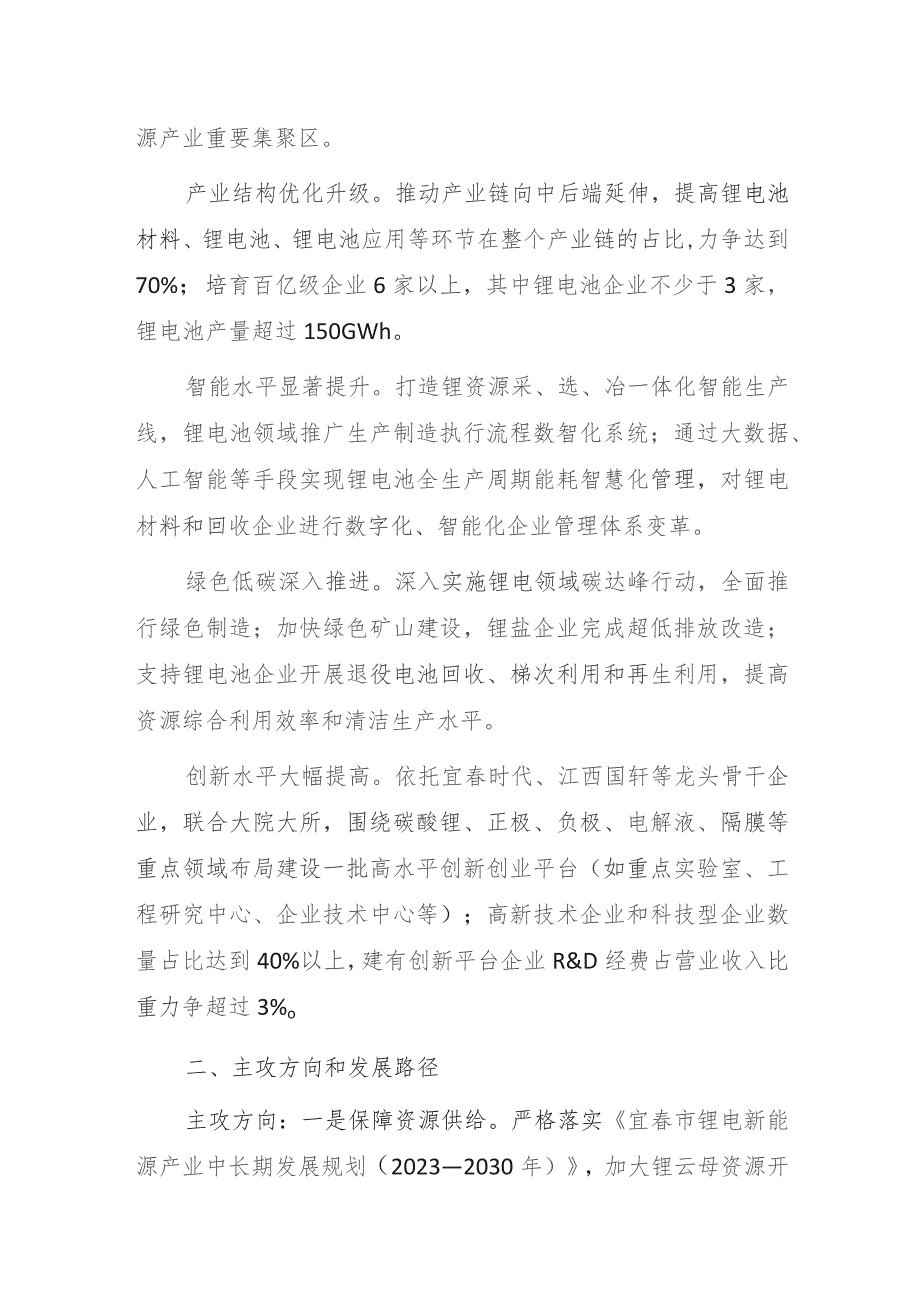 源产业重要集聚区。
产业结构优化升级。推动产业链向中后端延伸，提高锂电池
材料、锂电池、锂电池应用等环节在整个产业链的占比,力争达到
70%；培育百亿级企业 6 家以上，其中锂电池企业不少于 3 家，
锂电池产量超过 150GWh。
智能水平显著提升。打造锂资源采、选、冶一体化智能生产
线，锂电池领域推广生产制造执行流程数智化系统；通过大数据、
人工智能等手段实现锂电池全生产周期能耗智慧化管理，对锂电
材料和回收企业进行数字化、智能化企业管理体系变革。
绿色低碳深入推进。深入实施锂电领域碳达峰行动，全面推
行绿色制造；加快绿色矿山建设，锂盐企业完成超低排放改造；
支持锂电池企业开展退役电池回收、梯次利用和再生利用，提高
资源综合利用效率和清洁生产水平。
创新水平大幅提高。依托宜春时代、江西国轩等龙头骨干企
业，联合大院大所，围绕碳酸锂、正极、负极、电解液、隔膜等
重点领域布局建设一批高水平创新创业平台（如重点实验室、工
程研究中心、企业技术中心等）；高新技术企业和科技型企业数
量占比达到 40%以上,建有创新平台企业 R&D 经费占营业收入比
重力争超过 3%。
二、主攻方向和发展路径
主攻方向：一是保障资源供给。严格落实《宜春市锂电新能
源产业中长期发展规划（2023—2030 年）》，加大锂云母资源开